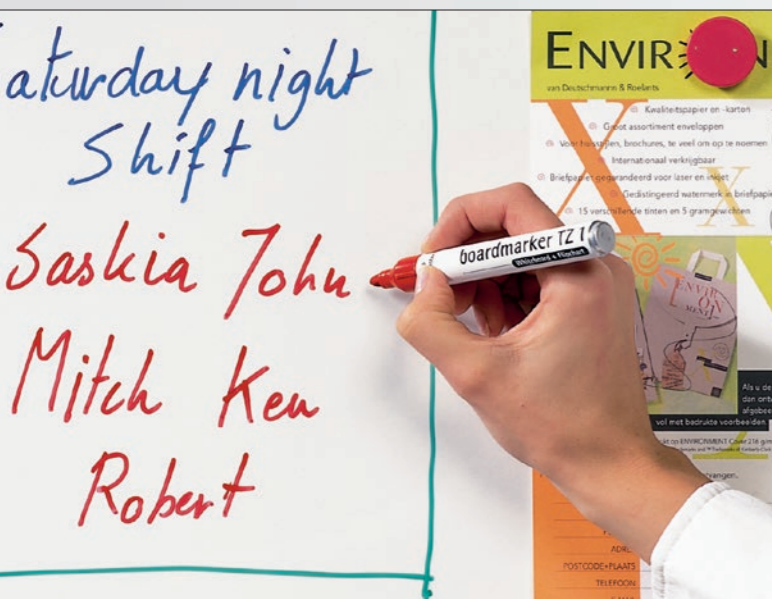 aturday night
Shift
Saskia John
Mitch Ken
Robert
boardmarker TZ 1
Whiteboard + Flipchart
ENVIR N
van Deutschmann & Roelants
Kwaliteitspapier en -karton
Groot assortiment enveloppen
Voor huisstijlen, brochures, te veel om op te noemen
Internationaal verkrijgbaar
Briefpapier gegarandeerd voor laser en inkjet
Gedistingeerd watermerk in briefpapie
15 verschillende tinten en 5 gramgewichten
X
X
ENVIR
ON
MENT
Als u de
dan ont
afgebee
vol met bedrukte voorbeelden.
ENVIRONMENT Cover 216 g
tvangen.
ADR
POSTCODE+PLAATS
TELEFOON